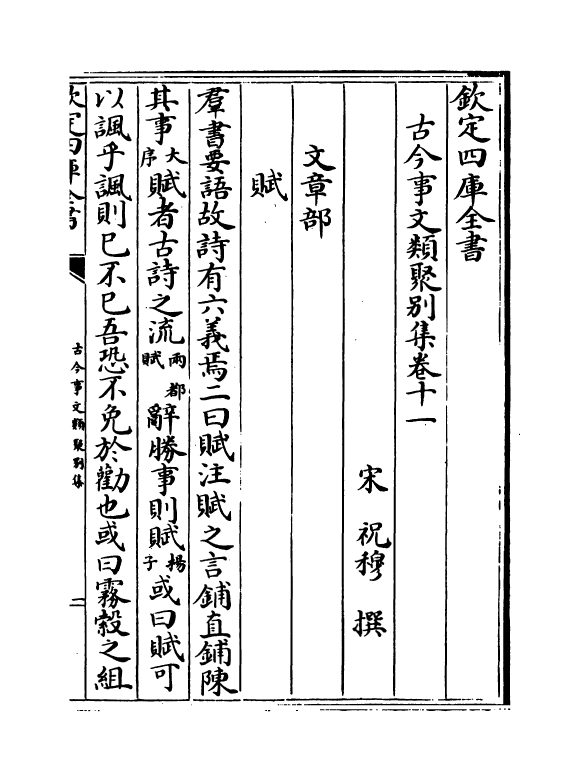 欽定四庫全書
古今事文類聚别集卷十一
宋 祝穆 撰
文章部
賦
羣書要語故詩有六義焉二曰賦注賦之言鋪直鋪陳
其事大序賦者古詩之流兩都賦辭勝事則賦揚子或曰賦可
以諷乎諷則已不已吾恐不免於勸也或曰霧縠之組
欽定四庫全書
古今事文類聚别集
一